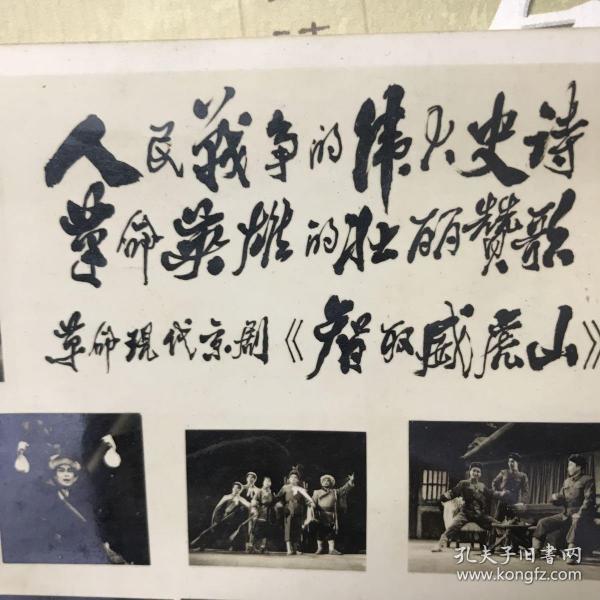 人民战争的伟大史诗
革命英雄的壮丽赞歌
革命现代京剧《智取威虎山》
孔夫子旧书网
www.kongfz.com